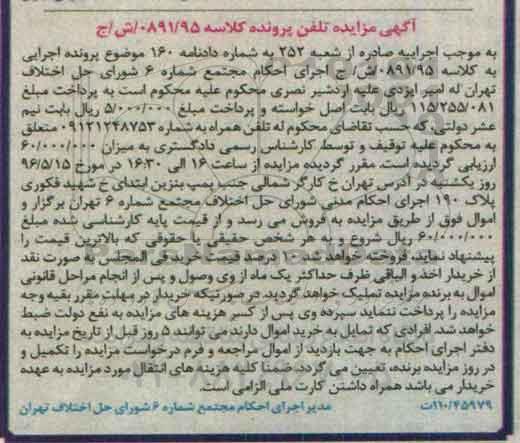 آگهی مزایده تلفن پرونده کلاسه ۰۸۹۱/۹۵/ش/ج
به موجب اجراییه صادره از شعبه ۲۵۲ به شماره دادنامه ۱۶۰ موضوع پرونده اجرایی
به کلاسه ۰۸۹۱/۹۵/ش/ ج اجرای احکام مجتمع شماره ۶ شورای حل اختلاف
تهران له امیر ایزدی علیه اردشیر نصری محکوم علیه محکوم است به پرداخت مبلغ
۱۱۵/۲۵۵/۰۸۱ ریال بابت اصل خواسته و پرداخت مبلغ ۵/۰۰۰/۰۰۰ ریال بابت نیم
عشر دولتی، که حسب تقاضای محکوم له تلفن همراه به شماره ۰۹۱۲۱۲۴۸۷۵۳ متعلق
به محکوم علیه توقیف و توسط کارشناس رسمی دادگستری به میزان ۶۰/۰۰۰/۰۰۰
ارزیابی گردیده است. مقرر گردیده مزایده از ساعت ۱۶ الی ۱۶:۳۰ در مورخ ۹۶/۵/۱۵
روز یکشنبه در آدرس تهران خ کارگر شمالی جنب پمپ بنزین ابتدای خ شهید فکوری
پلاک ۱۹۰ اجرای احکام مدنی شورای حل اختلاف مجتمع شماره ۶ تهران برگزار و
اموال فوق از طریق مزایده به فروش می رسد و از قیمت پایه کارشناسی شده مبلغ
۶۰/۰۰۰/۰۰۰ ریال شروع و به هر شخص حقیقی یا حقوقی که بالاترین قیمت را
پیشنهاد نماید، فروخته خواهد شد. ۱۰ درصد قیمت خرید فی المجلس به صورت نقد
از خریدار اخذ و الباقی ظرف حداکثر یک ماه از وی وصول و پس از انجام مراحل قانونی
اموال به برنده مزایده تملیک خواهد گردید. در صورتیکه خریدار در مهلت مقرر بقیه وجه
مزایده را پرداخت ننماید سپرده وی پس از کسر هزینه های مزایده به نفع دولت ضبط
خواهد شد. افرادی که تمایل به خرید اموال دارند می توانند ۵ روز قبل از تاریخ مزایده به
دفتر اجرای احکام به جهت بازدید از اموال مراجعه و فرم درخواست مزایده را تکمیل و
در روز مزایده برنده، تعیین می گردد. ضمنا کلیه هزینه های انتقال مورد مزایده به عهده
خریدار می باشد همراه داشتن کارت ملی الزامی است.
۱۱۰/۴۵۹۷۹ت مدیر اجرای احکام مجتمع شماره ۶ شورای حل اختلاف تهران